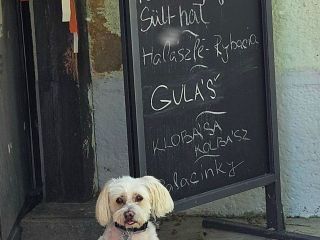 Sült hal
Halászlé - Rybacia
GULÁŠ
KLOBÁSA
KOLBÁSZ
Palacinky